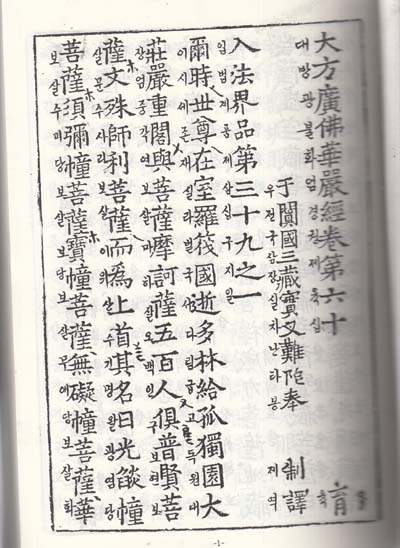 大方廣佛華嚴經卷第六十 育
대방광불화엄경권제육십
于闐國三藏實叉難陀奉 制譯
우전국삼장실차난타봉 제역
入法界品第三十九之一
입법계품제삼십구지일
爾時世尊在室羅筏國逝多林給孤獨園大
이시세존재실라벌국서다림급고독원대
莊嚴重閣與菩薩摩訶薩五百人俱普賢菩
장엄중각여보살마하살오백인구보현보
薩文殊師利菩薩而爲上首其名曰光燄幢
살문수사리보살이위상수기명왈광염당
菩薩須彌幢菩薩寶幢菩薩無礙幢菩薩華
보살수미당보살보당보살무애당보살화
-1-